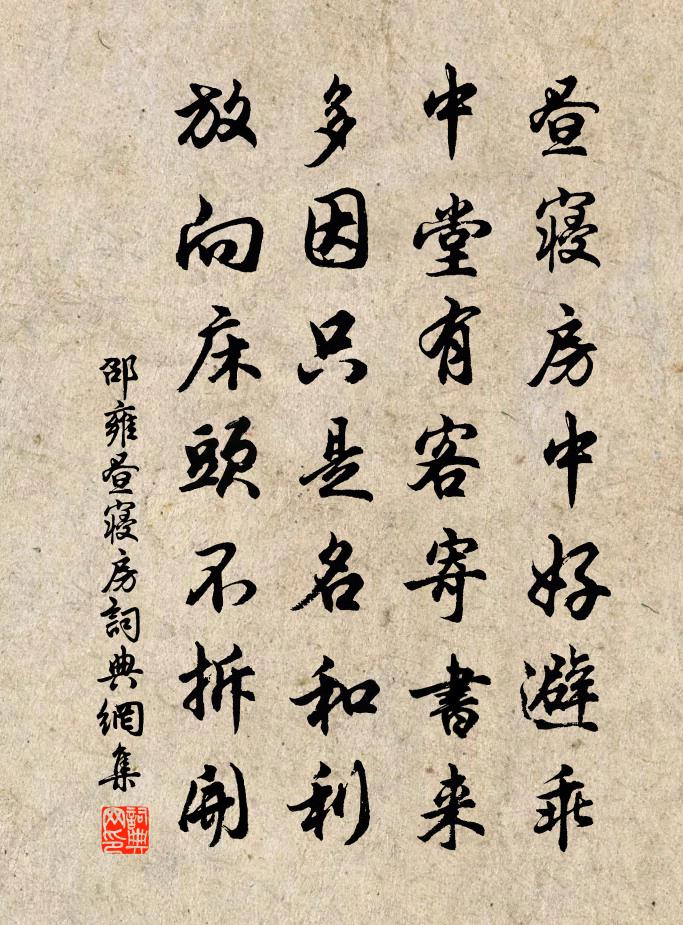 昼寝房中好避乖
中堂有客寄書来
多因只是名和利
放向床頭不拆開
邵雍昼寝房詞典網集
詞典网印